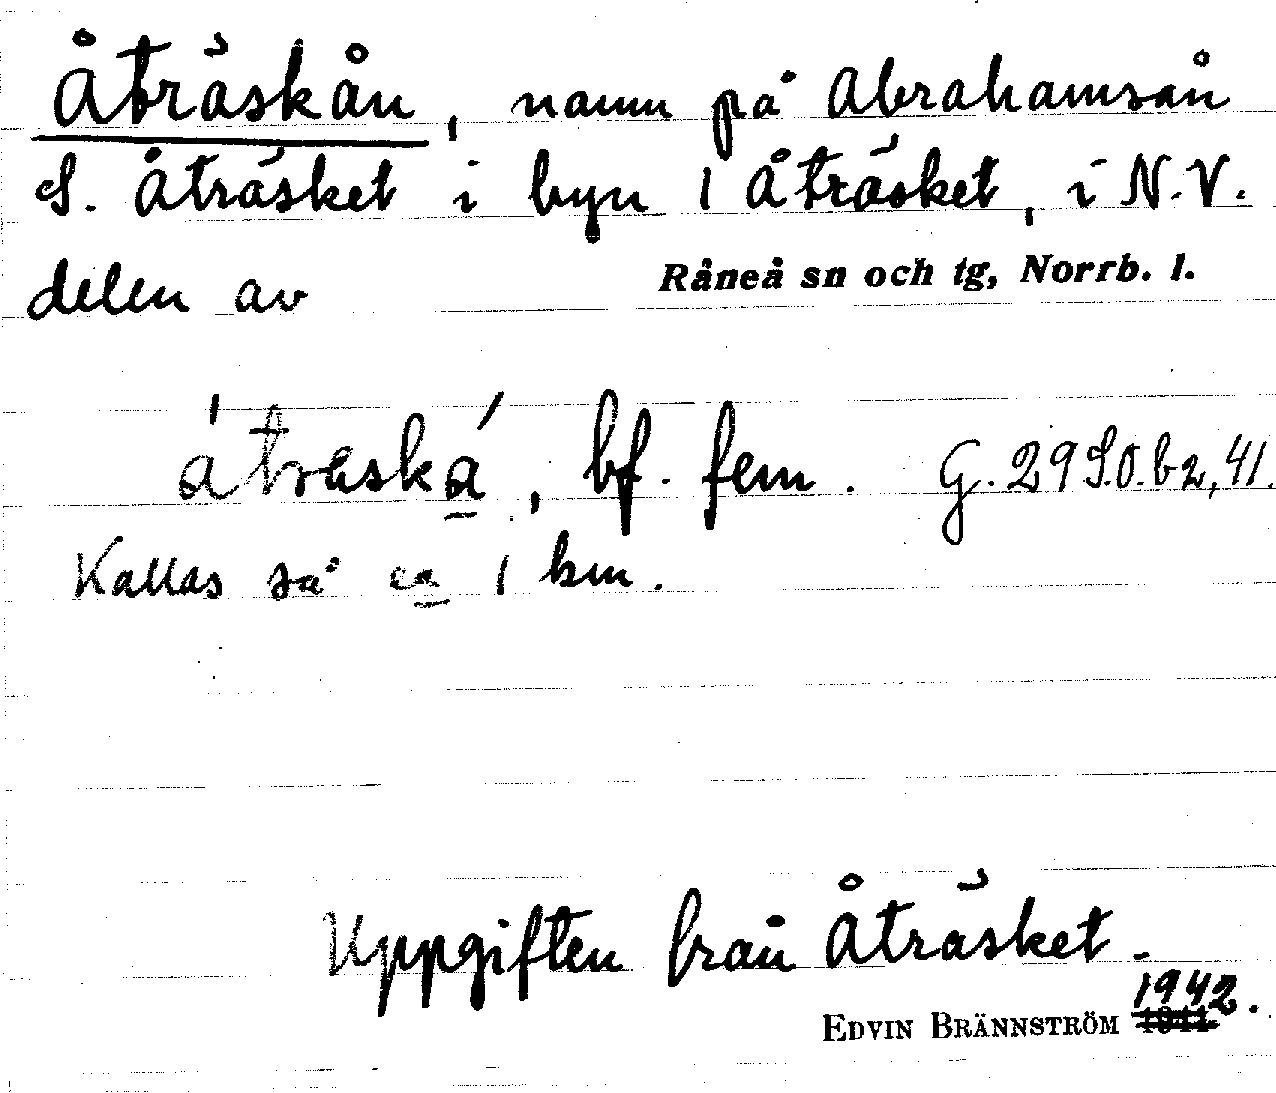 Åträskån, namn på Abrahamsån
S. Åträsket i byn 1 Åträsket, i N.V.
delen av Råneå sn och tg, Norrb. l.
bf. fem. G. 29 S.O. b2, 41.
Kallas så ca 1 km.
Uppgiften från Åträsket.
1942.
EDVIN BRÄNNSTRÖM 1941.